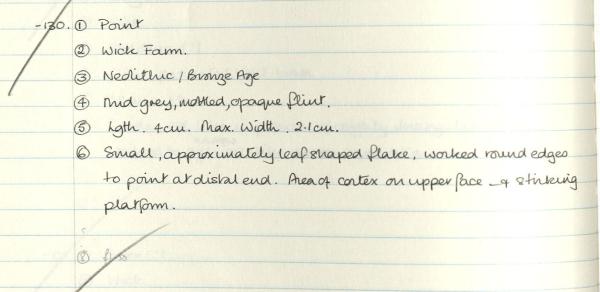 -130. ① Point
② Wick Farm.
③ Neolithic / Bronze Age
④ Mid grey, mottled, opaque flint.
⑤ Lgth. 4cm. Max. Width. 2.1cm.
⑥ Small, approximately leaf shaped flake, worked round edges
to point at distal end. Area of cortex on upper face & striking
platform.
⑧